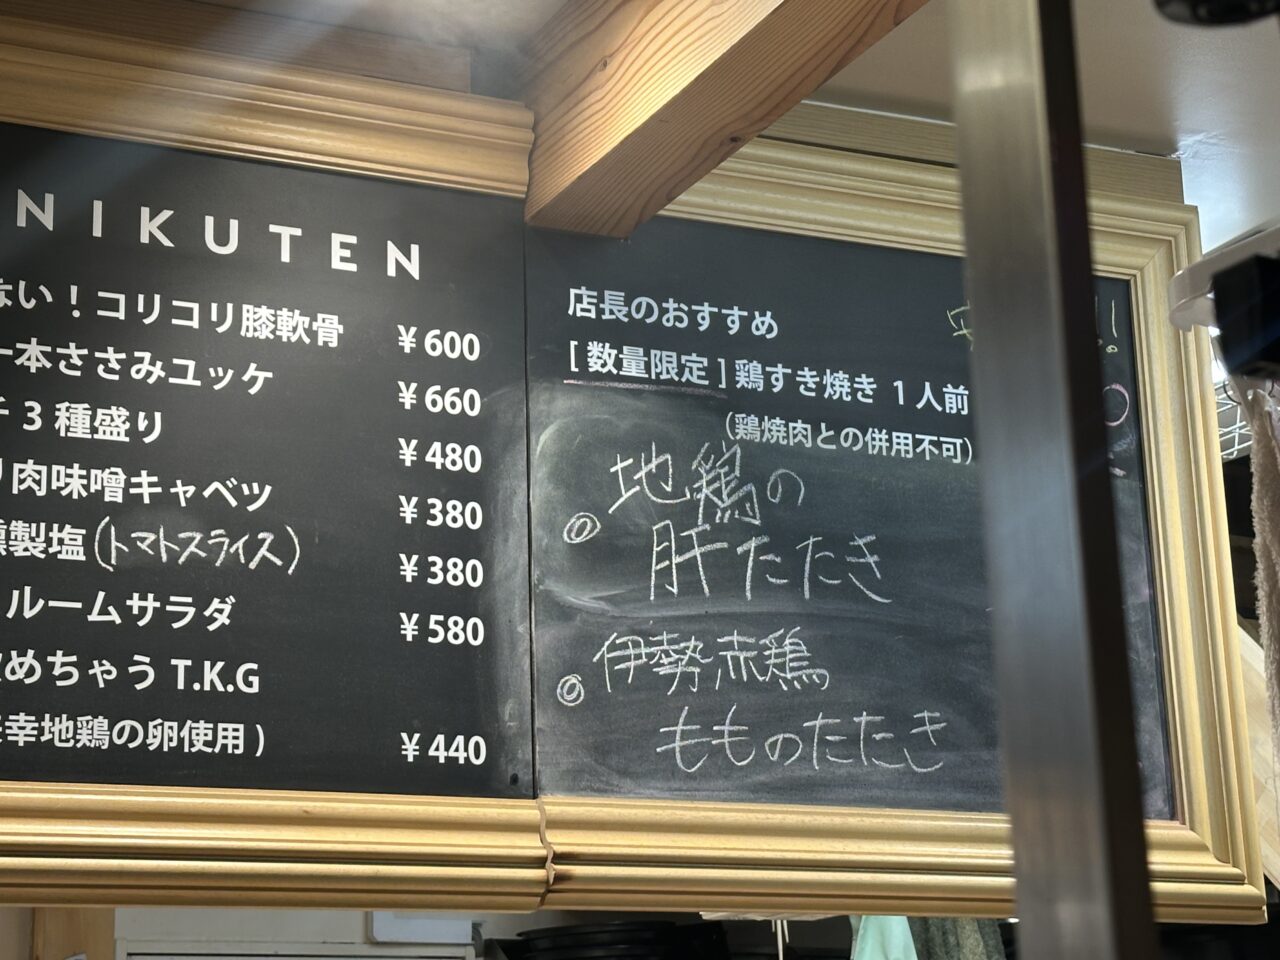 NIKUTEN
ない！コリコリ膝軟骨 ¥600
一本ささみユッケ ¥660
3種盛り ¥480
肉味噌キャベツ ¥380
燻製塩(トマトスライス) ¥380
ルームサラダ ¥580
めちゃう T.K.G
幸地鶏の卵使用) ¥440
店長のおすすめ
[数量限定]鶏すき焼き 1人前
(鶏焼肉との併用不可)
◎地鶏の
肝たたき
◎伊勢赤鶏
もものたたき